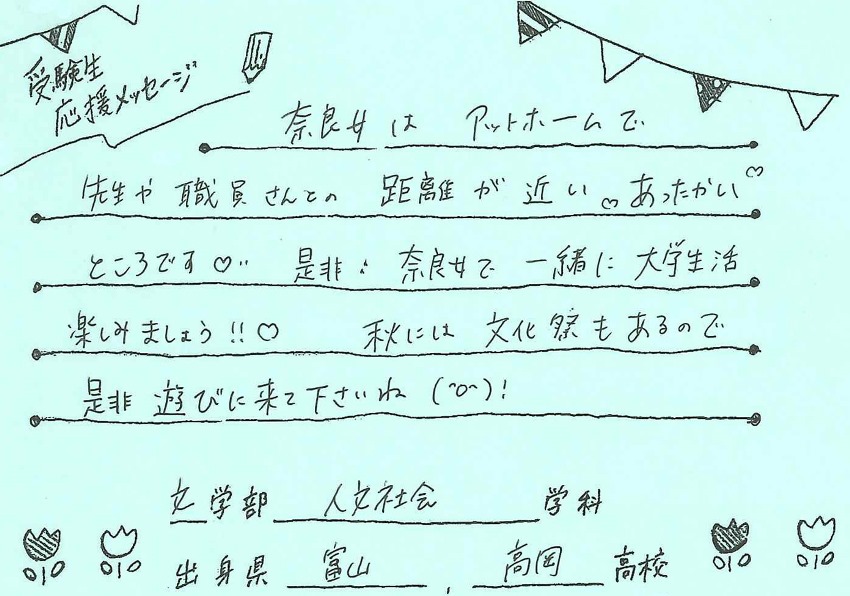 受験生
応援メッセージ
奈良女は アットホームで
先生や職員さんとの 距離が近い♡あったかい♡
ところです♡¨ 是非、奈良女で一緒に大学生活
楽しみましょう!!♡ 秋には文化祭もあるので
是非遊びに来て下さいね(^o^)!
文学部 人文社会 学科
出身県 富山 , 高岡 高校